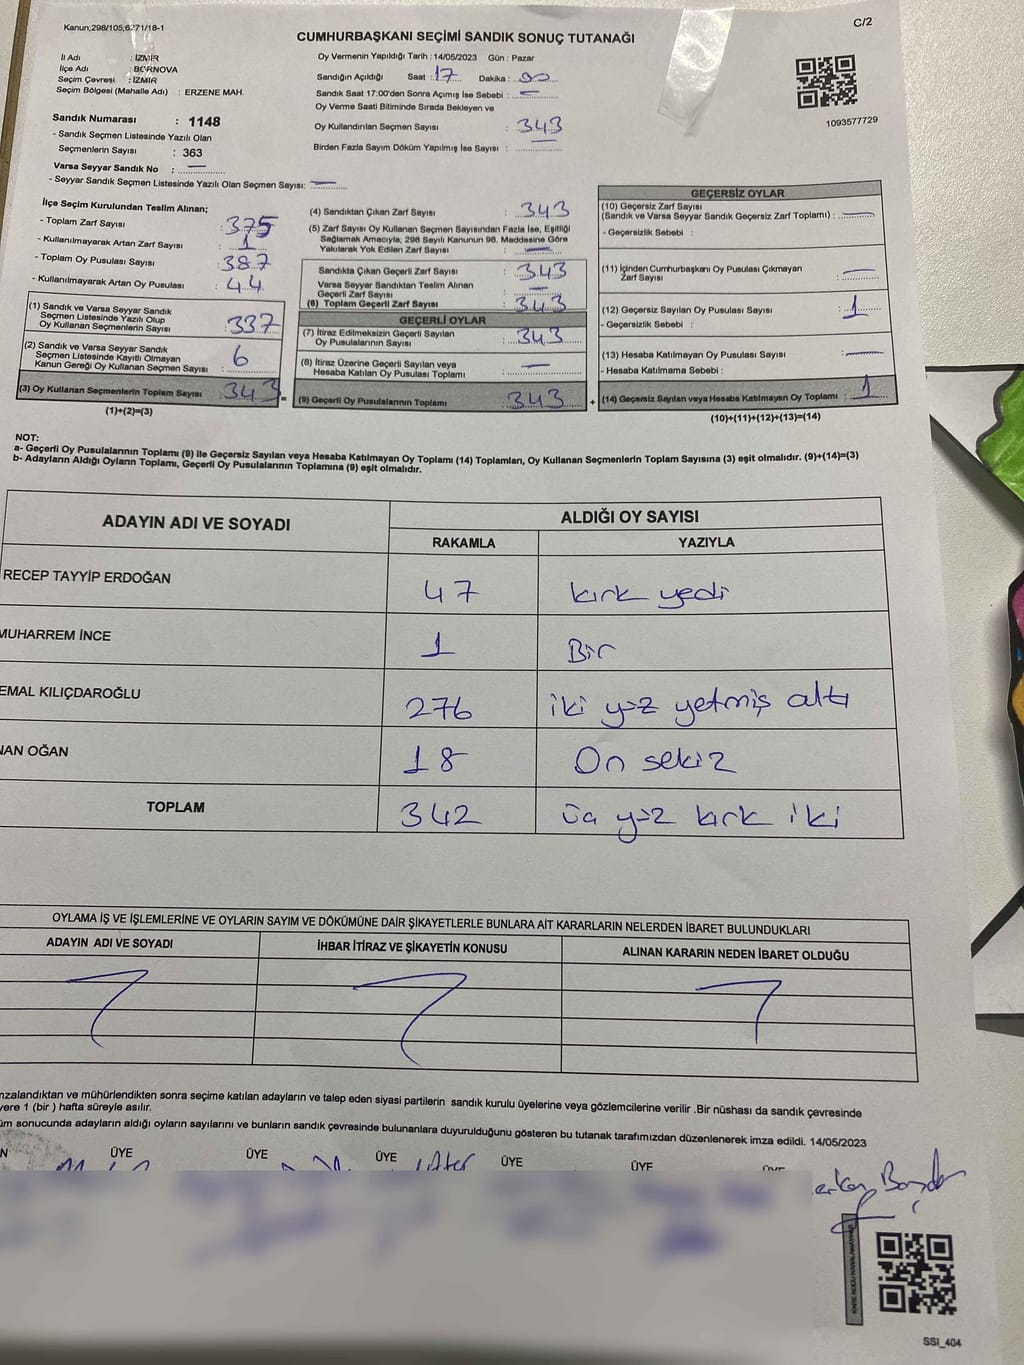 Kanun;298/105;6271/18-1
C/2
CUMHURBAŞKANI SEÇİMİ SANDIK SONUÇ TUTANAĞI
İl Adı : İZMİR
İlçe Adı : BORNOVA
Seçim Çevresi : İZMİR
Seçim Bölgesi (Mahalle Adı) : ERZENE MAH.
Sandık Numarası : 1148
- Sandık Seçmen Listesinde Yazılı Olan
Seçmenlerin Sayısı : 363
Varsa Seyyar Sandık No : —
- Seyyar Sandık Seçmen Listesinde Yazılı Olan Seçmen Sayısı: —
Oy Vermenin Yapıldığı Tarih : 14/05/2023 Gün : Pazar
Sandığın Açıldığı Saat : 17 Dakika : 00
Sandık Saat 17:00'den Sonra Açımış İse Sebebi : —
Oy Verme Saati Bitiminde Sırada Bekleyen ve
Oy Kullandırılan Seçmen Sayısı : 343
Birden Fazla Sayım Döküm Yapılmış İse Sayısı : —
1093577729
İlçe Seçim Kurulundan Teslim Alınan;
- Toplam Zarf Sayısı : 375
- Kullanılmayarak Artan Zarf Sayısı : 1
- Toplam Oy Pusulası Sayısı : 387
- Kullanılmayarak Artan Oy Pusulası : 44
(1) Sandık ve Varsa Seyyar Sandık
Seçmen Listesinde Yazılı Olup
Oy Kullanan Seçmenlerin Sayısı : 337
(2) Sandık ve Varsa Seyyar Sandık
Seçmen Listesinde Kayıtlı Olmayan
Kanun Gereği Oy Kullanan Seçmen Sayısı : 6
(3) Oy Kullanan Seçmenlerin Toplam Sayısı : 343
(1)+(2)=(3)
(4) Sandıktan Çıkan Zarf Sayısı : 343
(5) Zarf Sayısı Oy Kullanan Seçmen Sayısından Fazla İse, Eşitliği
Sağlamak Amacıyla; 298 Sayılı Kanunun 98. Maddesine Göre
Yakılarak Yok Edilen Zarf Sayısı : —
Sandıkta Çıkan Geçerli Zarf Sayısı : 343
Varsa Seyyar Sandıktan Teslim Alınan
Geçerli Zarf Sayısı : —
(6) Toplam Geçerli Zarf Sayısı : 343
GEÇERLİ OYLAR
(7) İtiraz Edilmeksizin Geçerli Sayılan
Oy Pusulalarının Sayısı : 343
(8) İtiraz Üzerine Geçerli Sayılan veya
Hesaba Katılan Oy Pusulası Toplamı : —
(9) Geçerli Oy Pusulalarının Toplamı : 343
GEÇERSİZ OYLAR
(10) Geçersiz Zarf Sayısı
(Sandık ve Varsa Seyyar Sandık Geçersiz Zarf Toplamı) : —
- Geçersizlik Sebebi :
(11) İçinden Cumhurbaşkanı Oy Pusulası Çıkmayan
Zarf Sayısı : —
(12) Geçersiz Sayılan Oy Pusulası Sayısı : 1
- Geçersizlik Sebebi :
(13) Hesaba Katılmayan Oy Pusulası Sayısı : —
- Hesaba Katılmama Sebebi :
+ (14) Geçersiz Sayılan veya Hesaba Katılmayan Oy Toplamı : 1
(10)+(11)+(12)+(13)=(14)
NOT:
a- Geçerli Oy Pusulalarının Toplamı (9) ile Geçersiz Sayılan veya Hesaba Katılmayan Oy Toplamı (14) Toplamları, Oy Kullanan Seçmenlerin Toplam Sayısına (3) eşit olmalıdır. (9)+(14)=(3)
b- Adayların Aldığı Oyların Toplamı, Geçerli Oy Pusulalarının Toplamına (9) eşit olmalıdır.
ADAYIN ADI VE SOYADI ALDIĞI OY SAYISI
RAKAMLA YAZIYLA
RECEP TAYYİP ERDOĞAN 47 kırk yedi
MUHARREM İNCE 1 Bir
EMAL KILIÇDAROĞLU 276 iki yüz yetmiş altı
NAN OĞAN 18 On sekiz
TOPLAM 342 üç yüz kırk iki
OYLAMA İŞ VE İŞLEMLERİNE VE OYLARIN SAYIM VE DÖKÜMÜNE DAİR ŞİKAYETLERLE BUNLARA AİT KARARLARIN NELERDEN İBARET BULUNDUKLARI
ADAYIN ADI VE SOYADI İHBAR İTİRAZ VE ŞİKAYETİN KONUSU ALINAN KARARIN NEDEN İBARET OLDUĞU
mzalandıktan ve mühürlendikten sonra seçime katılan adayların ve talep eden siyasi partilerin sandık kurulu üyelerine veya gözlemcilerine verilir .Bir nüshası da sandık çevresinde
yere 1 (bir ) hafta süreyle asılır.
üm sonucunda adayların aldığı oyların sayılarını ve bunların sandık çevresinde bulunanlara duyurulduğunu gösteren bu tutanak tarafımızdan düzenlenerek imza edildi. 14/05/2023
N ÜYE ÜYE ÜYE ÜYE ÜYE
SSI_404